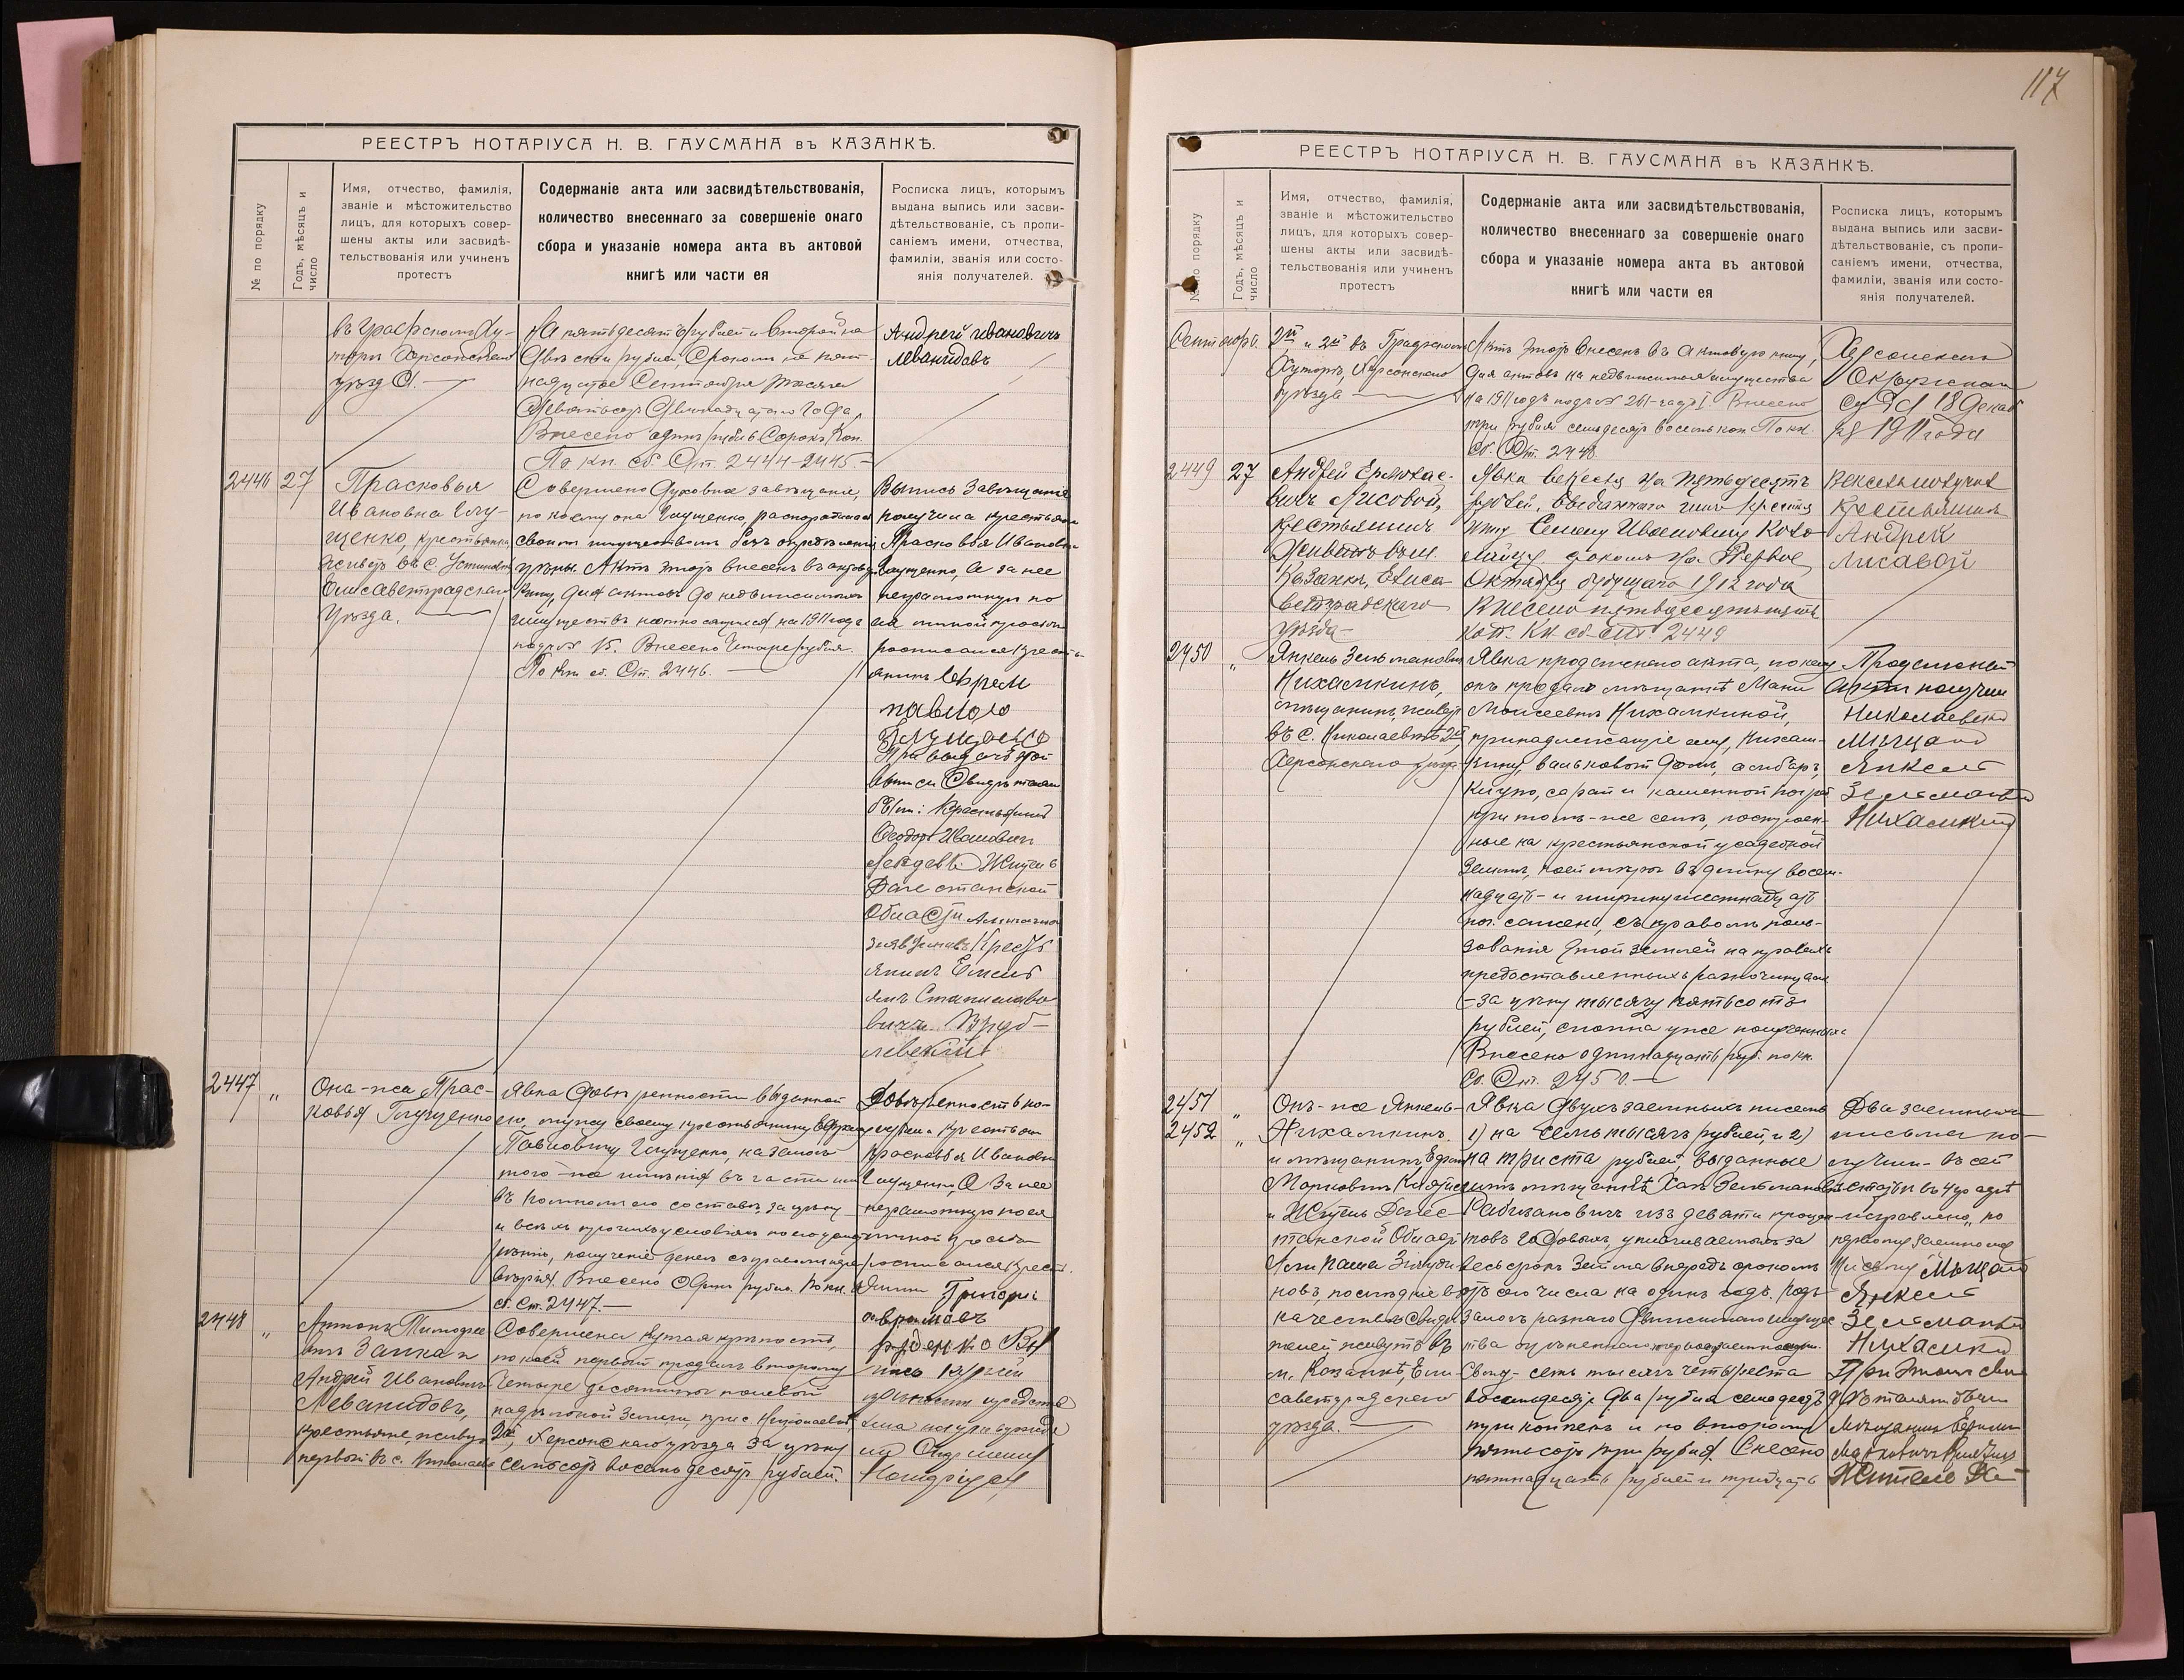 117
РЕЕСТРЪ НОТАРІУСА Н. В. ГАУСМАНА въ КАЗАНКѢ.
№ по порядку
Годъ, мѣсяцъ и
число
Имя, отчество, фамилія,
званіе и мѣстожительство
лицъ, для которыхъ совер-
шены акты или засвидѣ-
тельствованія или учиненъ
протестъ
Содержаніе акта или засвидѣтельствованія,
количество внесеннаго за совершеніе онаго
сбора и указаніе номера акта въ актовой
книгѣ или части ея
Росписка лицъ, которымъ
выдана выпись или засви-
дѣтельствованіе, съ пропи-
саніемъ имени, отчества,
фамиліи, званія или состо-
янія получателей.
въ Графскомъ Ху-
торѣ Херсонскаго
уѣзда.
на пятьдесятъ рублей и второй на
двѣсти рублей, срокомъ на пят-
надцатое Сентября тысяча
девятьсотъ двѣнадцатаго года,
Внесено одинъ рубль сорокъ коп.
По кн. сб. Ст. 2444-2445.
Андрей Ивановичъ
Леванидовъ
2446 27
Прасковья
Ивановна Глу-
щенко, крестьянка,
живетъ въ с. Устиновкѣ
Елисаветградскаго
уѣзда.
Совершено духовное завѣщаніе,
по коему она Глущенко, распорядилась
своимъ имуществомъ безъ опредѣленія
цѣны. Актъ этотъ внесенъ въ актовую
книгу, для актовъ до недвижимыхъ
имуществъ не относящихся на 1911 годъ
подъ № 15. Внесено четыре рубля.
По кн. сб. Ст. 2446.
Выпись завѣщанія
получила крестьянка
Прасковья Ивановна
Глущенко, а за нее
неграмотную по
ея личной просьбѣ
росписался кресть-
янинъ Ефрем
павлово
Глущенко
При выдачѣ этой
выписи свидѣтелями
были: Крестьянинъ
Феодоръ Ивановичъ
Лебедевъ. Житель
Дагестанской
Области
Крестъ-
янинъ Емель-
янъ Станиславо-
вичъ Вруб-
левскій
2447 „
Она-же Прас-
ковья Глущенко
Явка довѣренности выданной
ею, мужу своему крестьянину Ефрему
Павловичу Глущенко, на залогъ
того-же имѣнія въ части или
въ полномъ его составѣ, за цѣну
и всѣмъ прочимъ условіямъ по его усмот-
рѣнію, полученіе денегъ съ правомъ пере-
вѣрія. Внесено одинъ рубль. По кн.
сб. Ст. 2447.
Довѣренность по-
лучила крестьянка
Прасковья Ивановна
Глущенко, а за нее
неграмотную по ея
личной просьбѣ
росписался крест-
янинъ Григори
авраамовъ
руденко
2448 „
Антонъ Тимофее-
вичъ Заика и
Андрей Ивановичъ
Леванидовъ,
крестьяне, живутъ
первый въ с. Николаевкѣ
Совершена купчая крѣпость,
по коей первый продалъ второму
четыре десятины полевой
надѣльной земли, при с. Николаевкѣ
2й, Херсонскаго уѣзда за цѣну
семьсотъ восемьдесятъ рублей.
Выпись купчей
крѣпости
РЕЕСТРЪ НОТАРІУСА Н. В. ГАУСМАНА въ КАЗАНКѢ.
№ по порядку
Годъ, мѣсяцъ и
число
Имя, отчество, фамилія,
званіе и мѣстожительство
лицъ, для которыхъ совер-
шены акты или засвидѣ-
тельствованія или учиненъ
протестъ
Содержаніе акта или засвидѣтельствованія,
количество внесеннаго за совершеніе онаго
сбора и указаніе номера акта въ актовой
книгѣ или части ея
Росписка лицъ, которымъ
выдана выпись или засви-
дѣтельствованіе, съ пропи-
саніемъ имени, отчества,
фамиліи, званія или состо-
янія получателей.
Сентября.
2й, и 2й въ Графскомъ
Хуторѣ, Херсонскаго
уѣзда
Актъ этотъ внесенъ въ актовую книгу,
для актовъ на недвижимыя имущества
на 1911 годъ подъ № 261-часть I. Внесено
три рубля семьдесятъ восемь коп. По кн.
сб. Ст. 2448.
Херсонскомъ
Окружномъ
Судѣ 18 Декаб
ря 1911 года
2449 27
Андрей
Лисовой,
крестьянинъ
живетъ въ м.
Казанкѣ, Елиса-
ветградскаго
уѣзда
Явка векселя на пятьдесятъ
рублей, выданнаго имъ крестья-
нину Семену Ивановичу Коло-
срокомъ на первое
Октября будущаго 1912 года
Внесено пятьдесятъ шесть
коп. Кн. сб. ст. 2449
Вексель получилъ
Крестьянинъ
Андрей
Лисавой
2450 „
Янкель Зельмановичъ
Нихамкинъ,
мѣщанинъ, живетъ
въ с. Николаевкѣ 2й,
Херсонскаго уѣзда
Явка продажнаго акта, по коему
онъ продалъ мѣщанкѣ Мани
Моисеевнѣ Нихамкиной,
принадлежащіе ему, Нихам-
кину, вальковой домъ, амбаръ,
кухню, сарай и каменной погребъ
при томъ-же селѣ, построен-
ные на крестьянской усадебной
землѣ, коей мѣрою въ длину восем-
надцать- и ширину шестнадцать
пог. сажень, съ правомъ поль-
зованія этой землей на правахъ
предоставленныхъ разночинцамъ
-за цѣну тысячу пятьсотъ
рублей, сполна уже полученныхъ.
Внесено одиннадцать руб. по кн.
Сб. Ст. 2450.
Продажный
актъ получилъ
Николаевскій
Мѣщанинъ
Янкель
Зельмановъ
Нихамкинъ
2451 „
2452 „
Онъ-же Янкель-
Нихамкинъ
и мѣщанинъ
Марковичъ
и Житель Дагес-
танской Области
качествѣ свидѣ-
телей живутъ въ
м. Казанкѣ, Ели-
саветградскаго
уѣзда.
Явка двухъ заемныхъ писемъ
1) на семь тысячъ рублей, и 2)
на триста рублей, выданные
имъ мѣщанкѣ Хаѣ Зельмановнѣ
Рабиновичъ изъ девяти процен-
товъ годовыхъ, уплачиваемыхъ за
весь срокъ займа впередъ срокомъ
отъ сего числа на одинъ годъ. Подъ
залогъ разнаго движимаго имущес-
тва
семь тысячъ четыреста
восемьдесятъ два рубля семьдесятъ
три копѣек и по второму
пятьсотъ три рубля. Внесено
пятнадцать рублей и тридцать
Два заемныхъ
письма по-
лучилъ- въ сей
исправлено „по
первому заемному
письму Мѣщанинъ
Янкель
Зельмановъ
Нихамкинъ
При этомъ сви-
дѣтелями были
Мѣщанинъ
Жители Да-